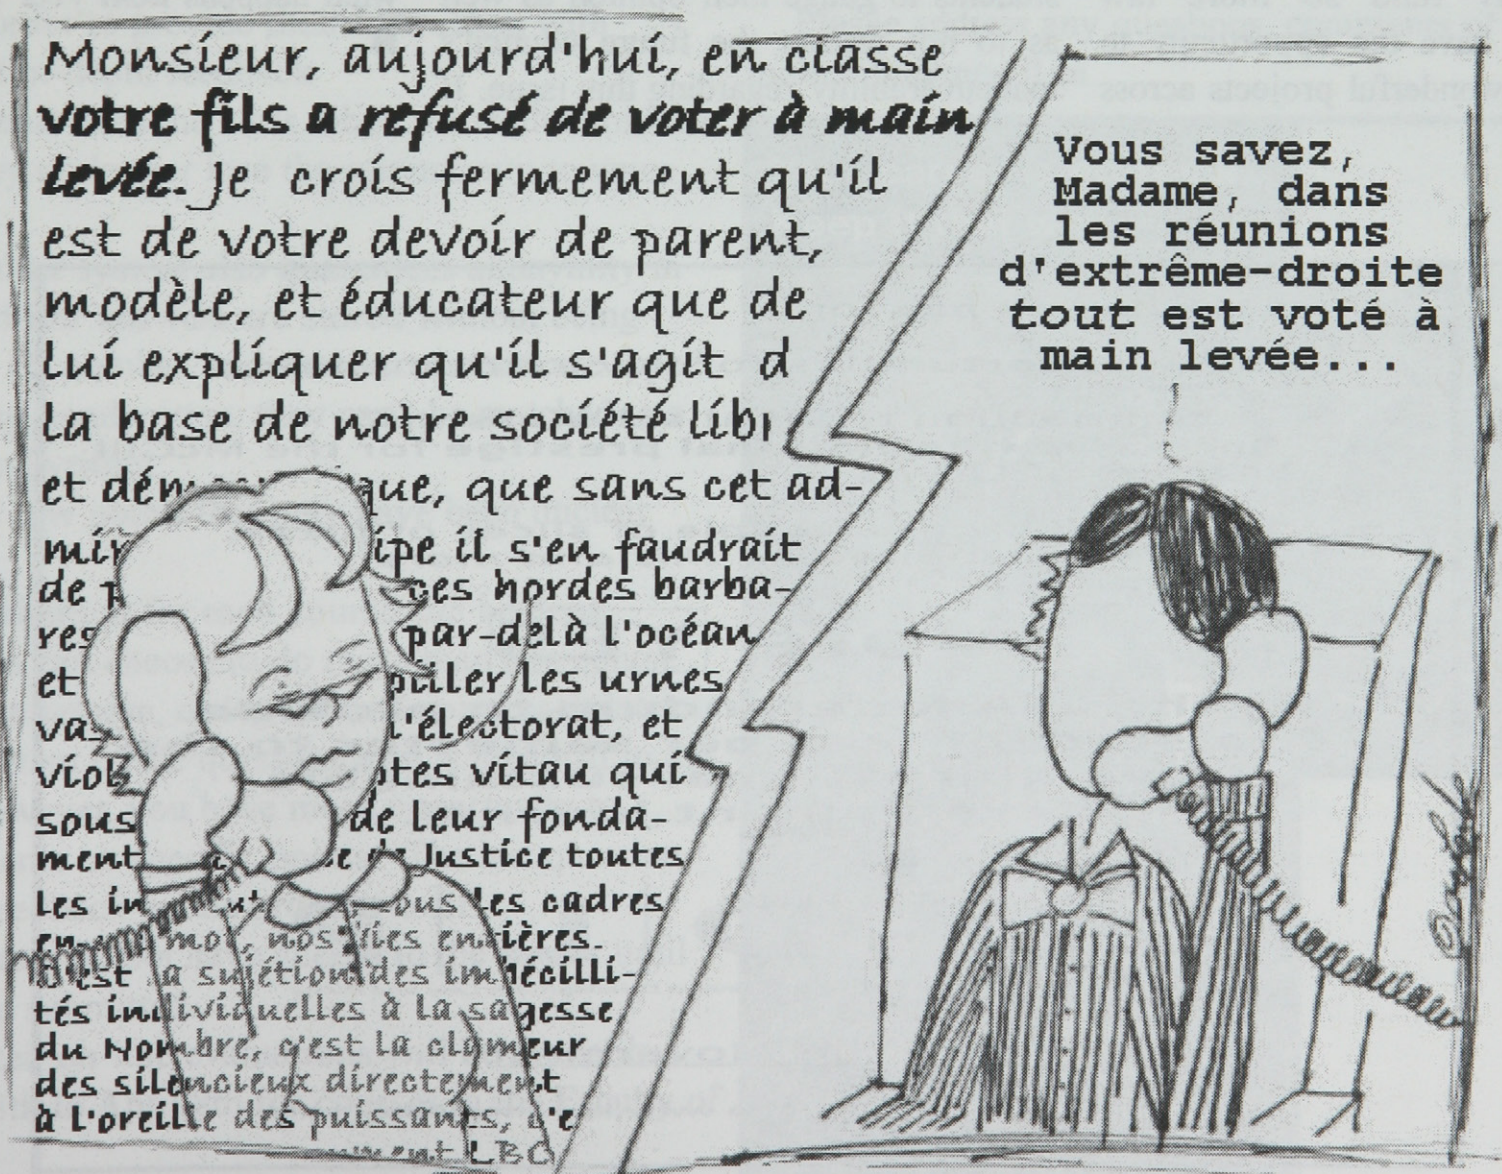 Monsieur, aujourd'hui, en classe
votre fils a refusé de voter à main
levée. Je crois fermement qu'il
est de votre devoir de parent,
modèle, et éducateur que de
lui expliquer qu'il s'agit d
la base de notre société
et que, que sans cet ad-
il s'en faudrait
de ces hordes barba-
par-delà l'océan
et les urnes
l'électorat, et
vitau qui
sous de leur fonda-
ment de Justice toutes
les cadres
mot, nos vies entières.
C'est la sujétion des imbécilli-
tés individuelles à la sagesse
du Nombre, c'est la clameur
des silencieux directement
à l'oreille des puissants, c'e
LBC
Vous savez,
Madame, dans
les réunions
d'extrême-droite
tout est voté à
main levée...